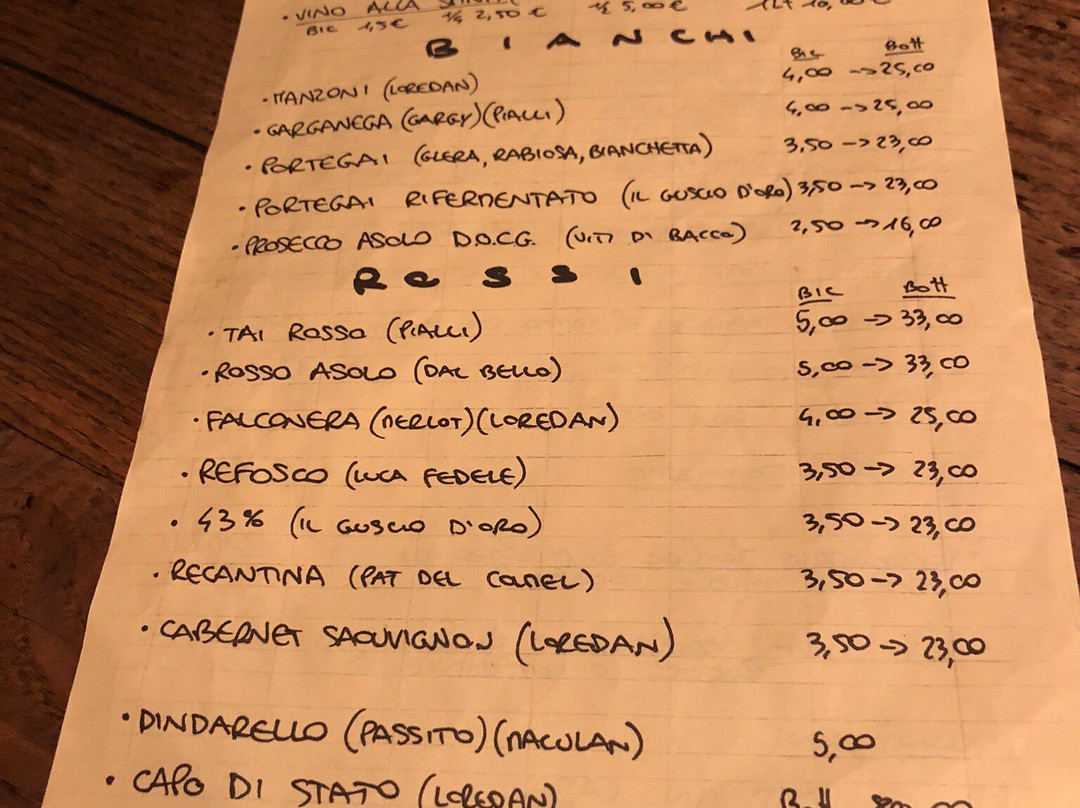 · VINO ALLA
BIC 1,5 € ¼ 2,50 € ½ 5,00 € 1LT 10,00 €
BIANCHI
Bic Bott
· MANZONI (LOREDAN) 4,00 -> 25,00
· GARGANEGA (GARGY)(PIALLI) 4,00 -> 25,00
· PORTEGAI (GLERA, RABIOSA, BIANCHETTA) 3,50 -> 23,00
· PORTEGAI RIFERMENTATO (IL GUSCIO D'ORO) 3,50 -> 23,00
· PROSECCO ASOLO D.O.C.G. (VITI DI BACCO) 2,50 -> 16,00
ROSSI
BIC Bott
· TAI ROSSO (PIALLI) 5,00 -> 33,00
· ROSSO ASOLO (DAL BELLO) 5,00 -> 33,00
· FALCONERA (MERLOT)(LOREDAN) 4,00 -> 25,00
· REFOSCO (LUCA FEDELE) 3,50 -> 23,00
· 43% (IL GUSCIO D'ORO) 3,50 -> 23,00
· RECANTINA (PAT DEL COLMEL) 3,50 -> 23,00
· CABERNET SAOUVIGNON (LOREDAN) 3,50 -> 23,00
· DINDARELLO (PASSITO)(MACULAN) 5,00
· CAPO DI STATO (LOREDAN) Bott